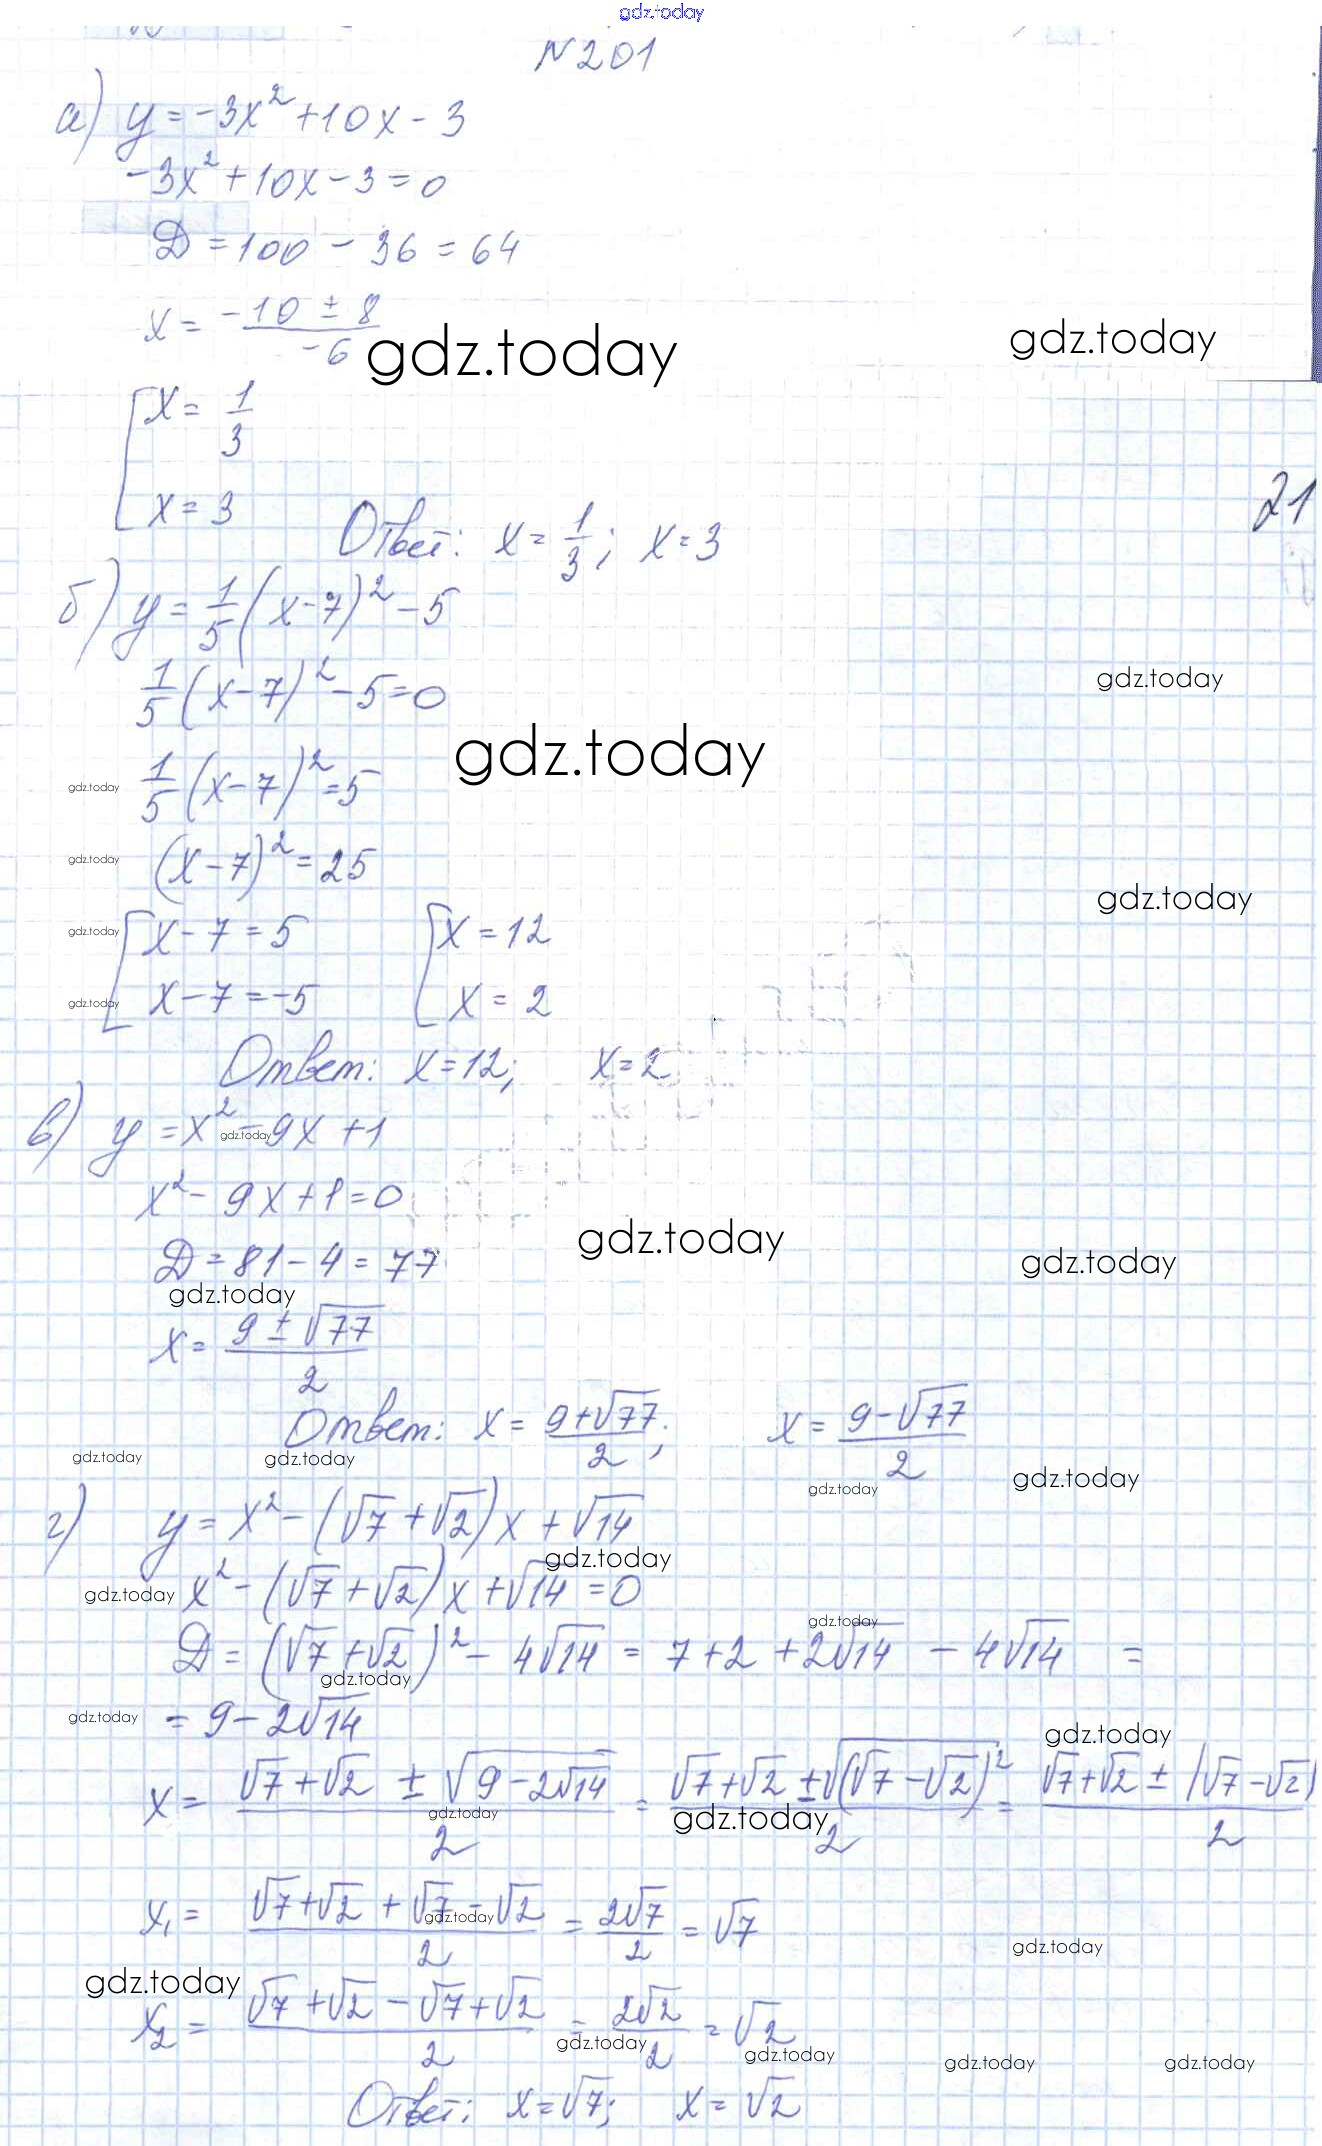 gdz.today
N 201
а) y = -3x² + 10x - 3
-3x² + 10x - 3 = 0
Д = 100 - 36 = 64
x = (-10 ± 8)/(-6)
gdz.today gdz.today
[ x = 1/3
21
x = 3
Ответ: x = 1/3; x = 3
б) y = 1/5 (x - 7)² - 5
gdz.today
1/5 (x - 7)² - 5 = 0
gdz.today
gdz.today 1/5 (x - 7)² = 5
gdz.today (x - 7)² = 25
gdz.today
gdz.today [ x - 7 = 5 [ x = 12
gdz.today x - 7 = -5 x = 2
Ответ: x = 12; x = 2
в) y = x² - 9x + 1
gdz.today
x² - 9x + 1 = 0
gdz.today gdz.today
Д = 81 - 4 = 77
gdz.today
x = (9 ± √77)/2
Ответ: x = (9 + √77)/2; x = (9 - √77)/2
gdz.today gdz.today gdz.today gdz.today
г) y = x² - (√7 + √2)x + √14
gdz.today
gdz.today x² - (√7 + √2)x + √14 = 0
gdz.today
Д = (√7 + √2)² - 4√14 = 7 + 2 + 2√14 - 4√14 =
gdz.today
gdz.today = 9 - 2√14
gdz.today
x = (√7 + √2 ± √(9 - 2√14))/2 = (√7 + √2 ± √((√7 - √2)²))/2 = (√7 + √2 ± (√7 - √2))/2
gdz.today gdz.today
x₁ = (√7 + √2 + √7 - √2)/2 = 2√7/2 = √7
gdz.today gdz.today
gdz.today
x₂ = (√7 + √2 - √7 + √2)/2 = 2√2/2 = √2
gdz.today gdz.today gdz.today gdz.today
Ответ: x = √7; x = √2